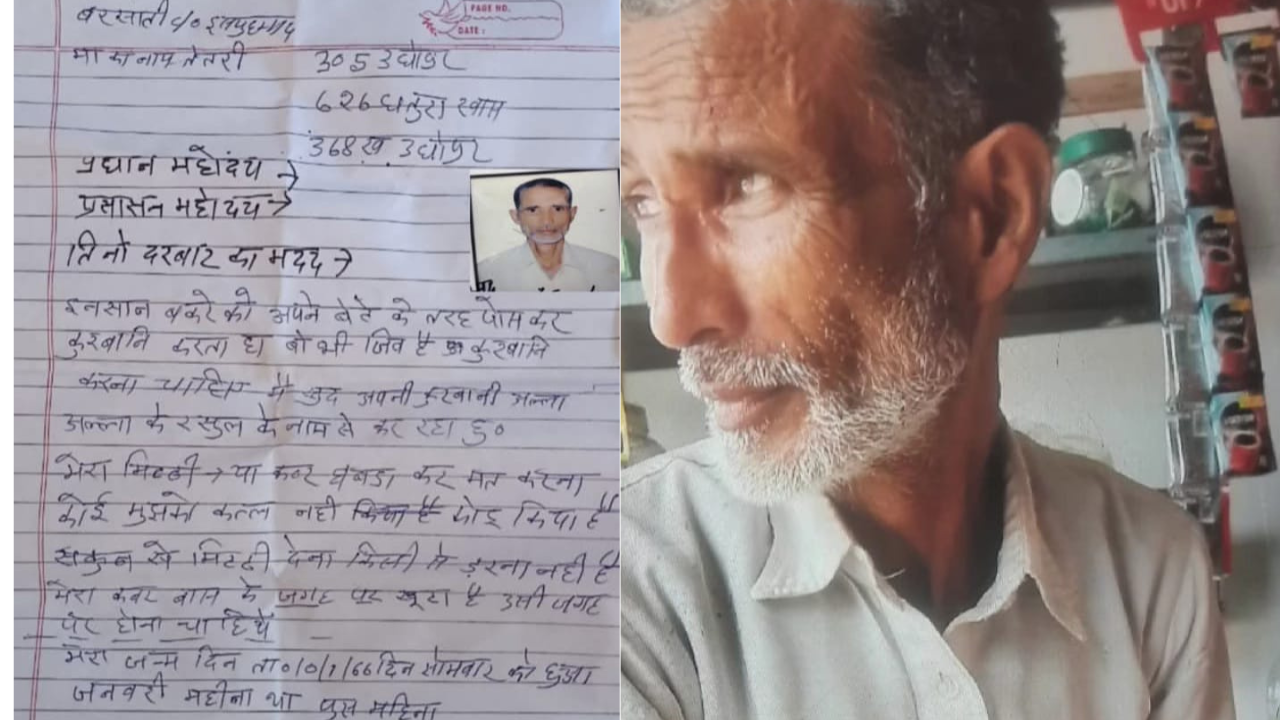 PAGE NO.
DATE :
बरसाती
मा का नाम तेतरी
305 उधोपुर
626 धतुरा खास
368 ख. उधोपुर
प्रधान महोदय →
प्रसासन महोदय →
तिनो दरबार का मदद →
इनसान बकरे को अपने बेटे के तरह पोस कर
कुरबानि करता हा वो भी जिव है कुरबानि
करना चाहिए मै खुद अपनी कुरबानी अल्ला
अल्ला के रसुल के नाम से कर रहा हु०
मेरा मिटटी → या कबर घबडा कर मत करना
कोई मुझको कत्ल नही किया है कोइ किया है
सकुन से मिटटी देना किसी से ड़रना नही है
मेरा कबर बास के जगह पर खूटा है उसी जगह
पर होना चाहिये
मेरा जन्म दिन ता०/०/1/66 दिन सोमवार को हुआ
जनवरी महीना था पुस महिना